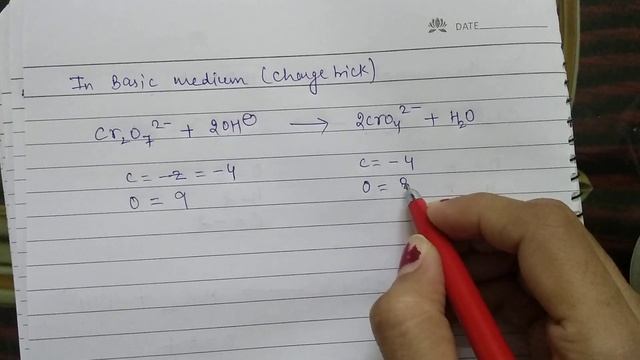 DATE
In Basic medium (charge trick)
Cr₂O₇²⁻ + 2OH⊖ → 2CrO₄²⁻ + H₂O
C = -2 = -4 C = -4
O = 9 O = 8